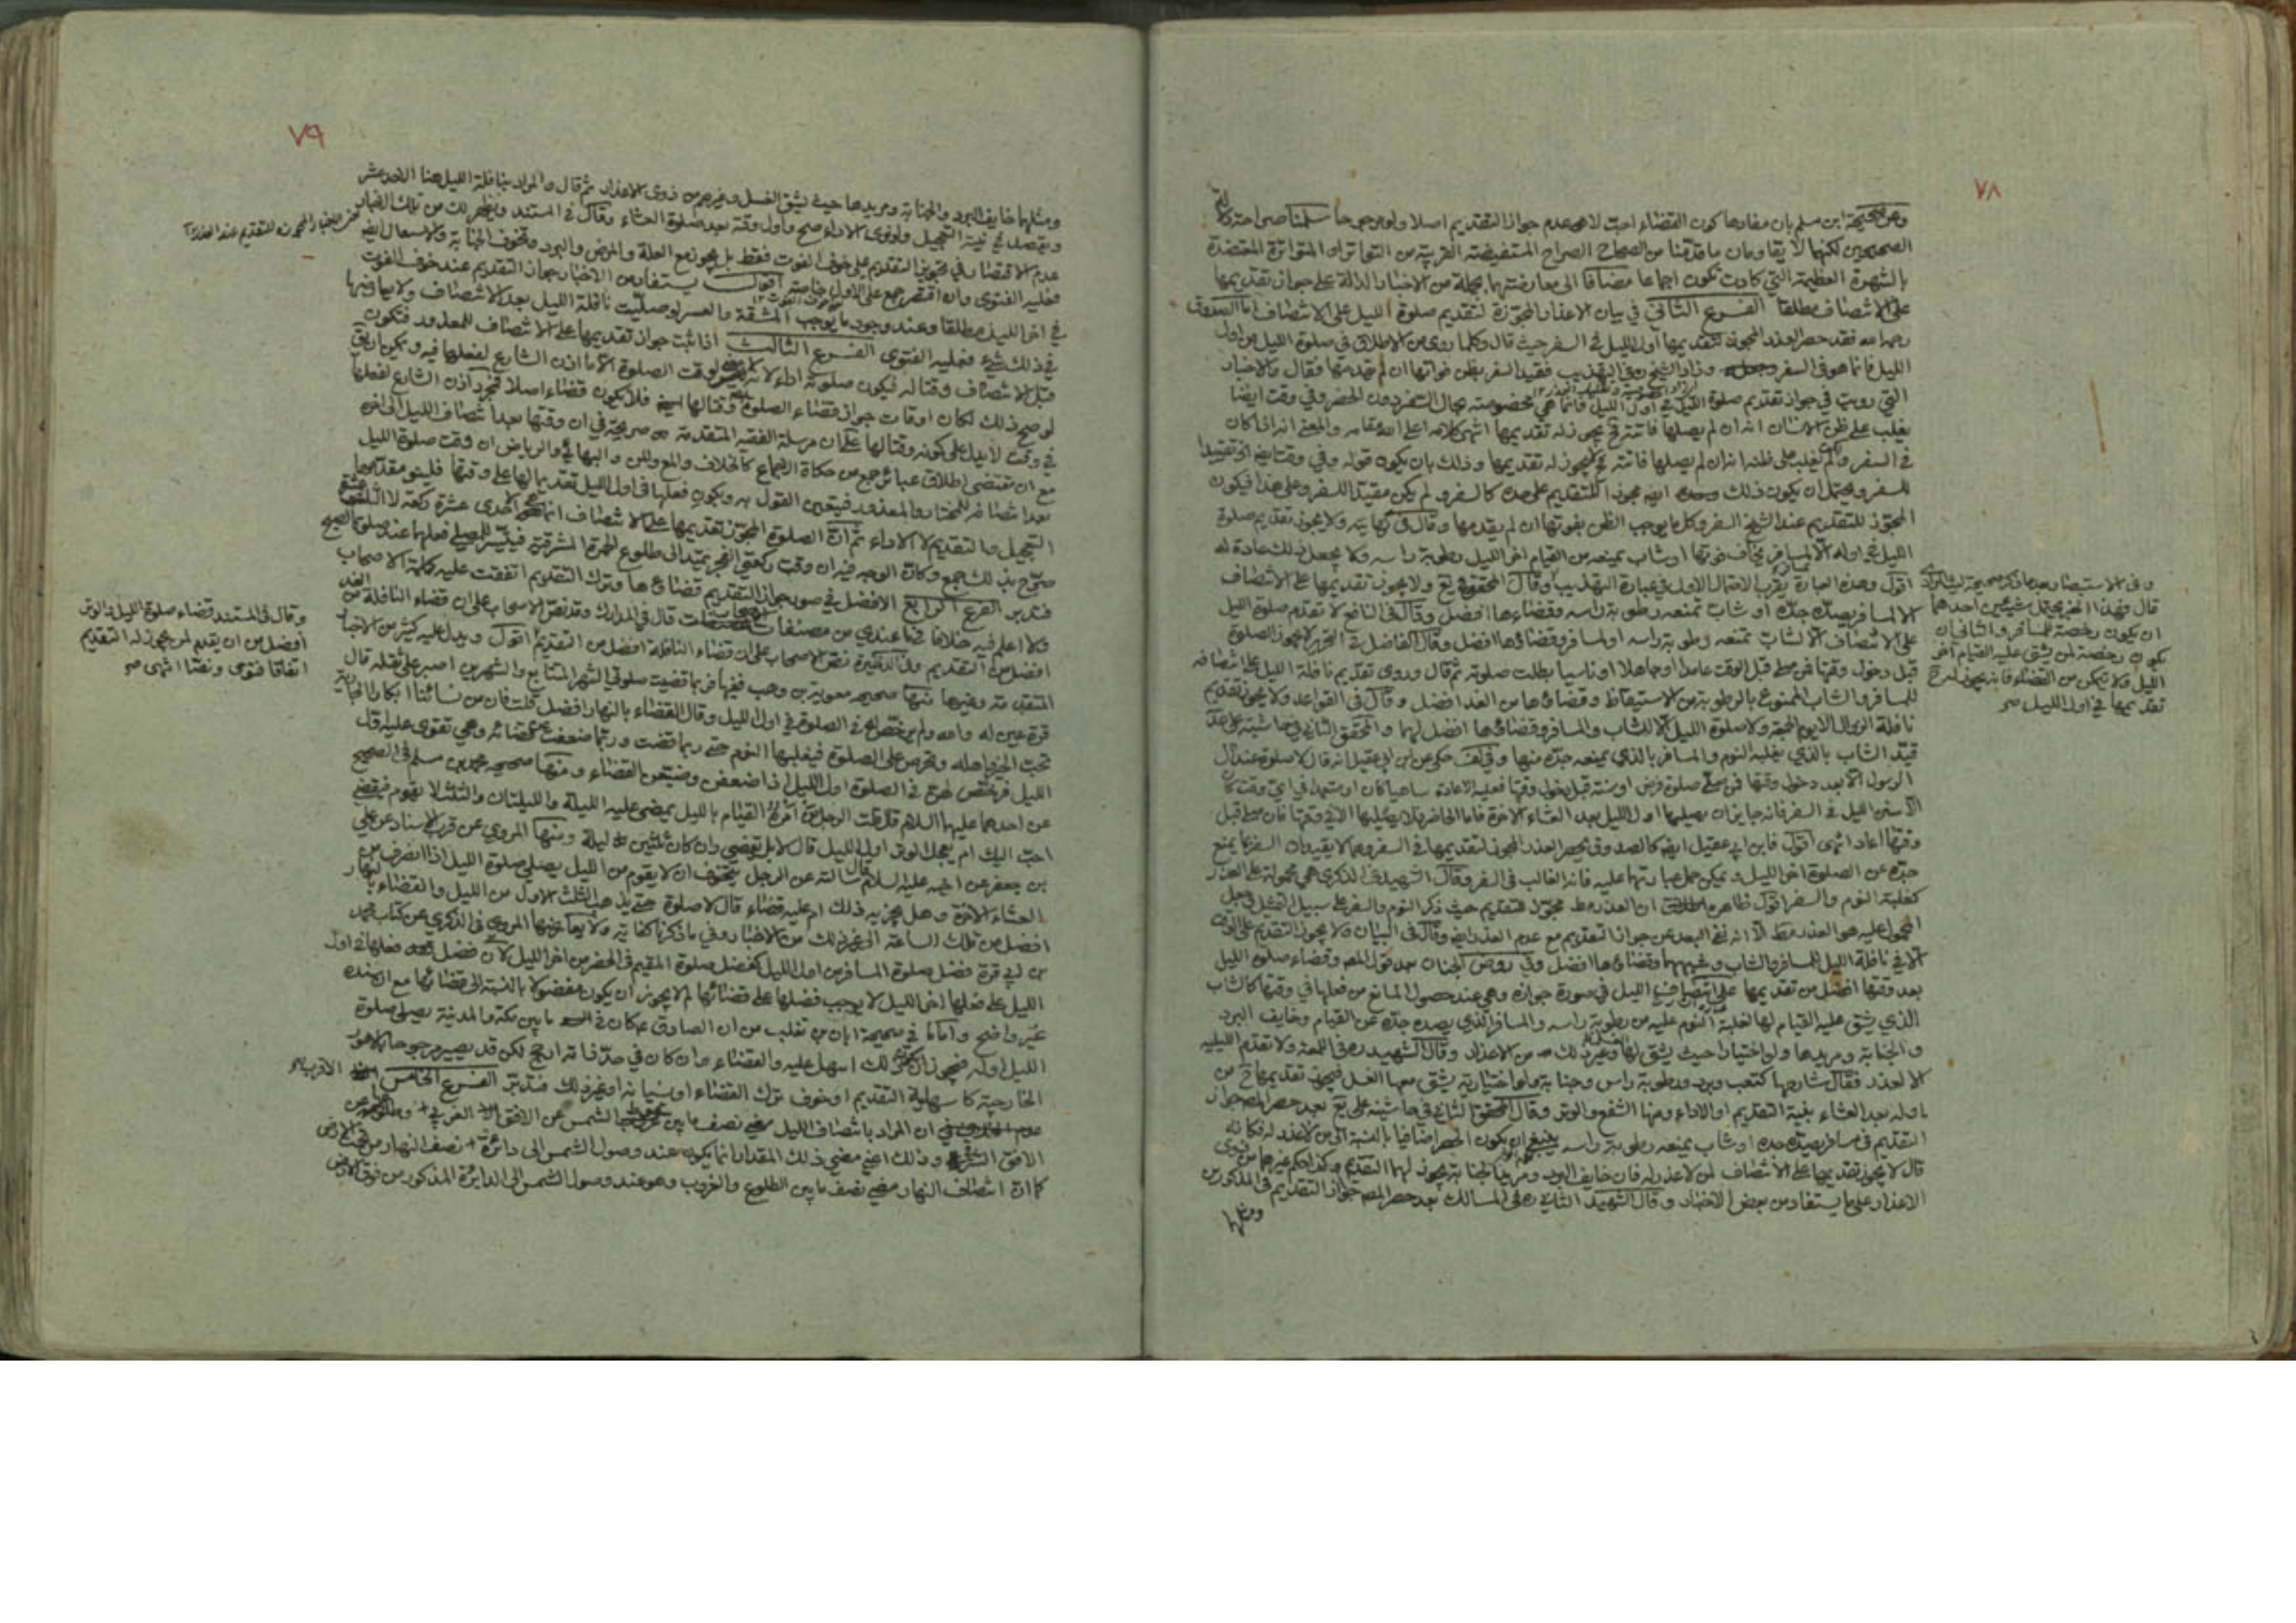 ٧٨
وعن صحيحة ابن مسلم بان مفادها كون القضاء احب لا عدم جواز التقديم اصلا ولو موجب
الصحيحين لكنها لا يقاومان ما قدمنا من الصحاح الصراح المستفيضة القريبة من التواتر او المتواترة المعتضدة
بالشهرة العظيمة التي كادت تكون اجماعا مضافا الى معارضتها بجملة من الاخبار الدالة على جواز تقديمها
على الانتصاف مطلقا الفرع الثاني في بيان الاعذار المجوزة لتقديم صلوة الليل على الانتصاف اما الصدوق
رحمه الله فقد حصر العذر المجوز لتقديمها اول الليل في السفر حيث قال وكلما روى من الاطلاق في صلوة الليل من اول
الليل فانما هو في السفر وزاد الشيخ في التهذيب فقيد السفر بظن فواتها ان لم يقدمها فقال والاخبار
التي رويت في جواز تقديم صلوة الليل في اول الليل فانما هي مخصوصة بحال السفر دون الحضر وفي وقت ايضا
يغلب على ظن الانسان انه ان لم يصلها فاتته يجوز له تقديمها انتهى كلامه اعلى الله مقامه والمعنى انه اذا كان
في السفر ولم يغلب على ظنه انه ان لم يصلها فاتته لا يجوز له تقديمها وذلك بان يكون قوله وفي وقت
للسفر ويحتمل ان يكون ذلك وحده ايضا مجوزا للتقديم على حدة كالسفر ولم يكن مقيدا للسفر وعلى هذا فيكون
المجوز للتقديم عند الشيخ السفر وكل ما يوجب الظن بفوتها ان لم يقدمها وقال في نهايته ولا يجوز تقديم صلوة
الليل في اوله الا لمسافر يخاف فوتها او شاب يمنعه من القيام اخر الليل رطوبة راسه ولا يجعل ذلك عادة له
اقول وهذه العبارة يقرب الاحتمال الاول في عبارة التهذيب وقال المحقق في يع ولا يجوز تقديمها على الانتصاف
الا لمسافر يصده جده او شاب تمنعه رطوبة راسه وقضاءها افضل وقال في النافع لا تقدم صلوة الليل
على الانتصاف الا لشاب تمنعه رطوبة راسه او لمسافر وقضاؤها افضل وقال الفاضل في التحرير لا يجوز الصلوة
قبل دخول وقتها فمن صلى قبل الوقت عامدا او جاهلا او ناسيا بطلت صلوته ثم قال وروى تقديم نافلة الليل على انتصافه
للمسافر والشاب الممنوع بالرطوبة من الاستيقاظ وقضاؤها من الغد افضل وقال في القواعد ولا يجوز تقديم
نافلة الزوال الا يوم الجمعة ولا صلوة الليل الا للشاب والمسافر وقضاؤها افضل لهما والمحقق الثاني في حاشيته على عد
قيد الشاب بالذي يغلبه النوم والمسافر بالذي يمنعه جده منها وفي لف حكى عن ابن ابي عقيل انه قال لا صلوة عند آل
الرسول الا بعد دخول وقتها فمن صلى صلوة فرض او سنة قبل دخول وقتها فعليه الاعادة ساهيا كان او متعمدا في اي وقت كان
الا سنن الليل في السفر فانه جايز ان يصليها اول الليل بعد العشاء الاخرة فاما الحاضر فلا يصليها الا في وقتها فان صلى قبل
وقتها اعاد انتهى اقول فابن ابي عقيل ايضا كالصدوق يحصر العذر المجوز لتقديمها في السفر وهما لا يقيدان السفر بما يمنع
جده عن الصلوة اخر الليل ويمكن حمل عبارتهما عليه فانه الغالب في السفر وقال الشهيد في الذكرى هي محمولة على العذر
كغلبة النوم والسفر اقول ظاهره ان العذر مجوز للتقديم حيث ذكر النوم والسفر على سبيل التمثيل وجعل
المحمول عليه هو العذر الا انه نفى البعد عن جواز التقديم مع عدم العذر ايضا وقال في البيان ولا يجوز التقديم على
الا في نافلة الليل للمسافر والشاب وشبههما وقضاؤها افضل وفي روض الجنان بعد قول المص وقضاء صلوة الليل
بعد وقتها افضل من تقديمها على انتصاف الليل في صورة جوازه وهي عند حصول المانع من فعلها في وقتها كالشاب
الذي يشق عليه القيام لها لغلبة النوم عليه من رطوبة راسه والمسافر الذي يصده جده عن القيام وخايف البرد
والجنابة ومريدها ولو اختيارا حيث يشق لها وغير ذلك من الاعذار وقال الشهيد ره في اللمعة ولا تقدم الليلية
الا لعذر فقال شارحها كتعب وبرد ورطوبة راس وجنابة ولو اختيارية يشق معها الغسل فيجوز تقديمها ح من
اوله بعد العشاء بنية التقديم او الاداء ومنها الشفع والوتر وقال المحقق الثاني في حاشيته على يع بعد حصر المص جواز
التقديم في مسافر يصده جده او شاب يمنعه رطوبة راسه ينبغي ان يكون الحصر اضافيا بالنسبة الى من لا عذر له فكانه
قال لا يجوز تقديمها على الانتصاف لمن لا عذر له فان خايف البرد ومريد الجنابة يجوز لهما التقديم وكذا حكم غيرهما من ذوي
الاعذار على ما يستفاد من بعض الاخبار وقال الشهيد الثاني ره في المسالك بعد حصر المص جواز التقديم في المذكورين
ومثلها
وفي الاستبصار بعد ما ذكر صحيحة ليث المرادي
قال فهذا الخبر يحتمل شيئين احدهما
ان يكون رخصة للمسافر والثاني ان
يكون رخصة لمن يشق عليه القيام آخر
الليل ولا يتمكن من القضاء فانه يجوز له ح
تقديمها في اول الليل صح
٧٩
ومثلهما خايف البرد والجنابة ومريدها حيث يشق الغسل وغيرهم من ذوى الاعذار ثم قال والمراد بنافلة الليل هنا الاحد عشر
ويقصد في نية التعجيل ولو نوى الاداء صح واول وقته بعد صلوة العشاء وقال في المستند ويظهر لك من تلك الاخبار
عدم الاقتصار في تجويز التقديم على خوف الفوت فقط بل يجوز مع العلة والمرض والبرد وتخوف الجنابة والاستعجال ايضا
فعليه الفتوى وان اقتصر جمع على الاول خاصة اقول يستفاد من الاخبار جواز التقديم عند خوف الفوت
في اخر الليل مطلقا وعند وجود ما يوجب المشقة والعسر لو صليت نافلة الليل بعد الانتصاف ولا يعارضها
في ذلك شيء فعليه الفتوى الفرع الثالث اذا ثبت جواز تقديمها على الانتصاف للمعذور فتكون
قبل الانتصاف وقتا له فيكون صلوته اداء لانه لوقت الصلوة الا ما اذن الشارع لفعلها فيه ويمكن ان يق
لو صح ذلك لكان اوقات جواز قضاء الصلوة وقتا لها ايضا فلا يكون قضاء اصلا فمجرد اذن الشارع لفعلها
في وقت لا يدل على كونه وقتا لها على ان مرسلة الفقيه المتقدمة صريحة في ان وقتها بعد انتصاف الليل الى اخره
مع ان مقتضى اطلاق عبائر جمع من حكاة الاجماع كالخلاف والمع ولس والبهائي والرياض ان وقت صلوة الليل
بعد انتصافه للمختار والمعذور فيتعين القول به ويكون فعلها في اول الليل تقديما لها على وقتها فلينو مقدمها
التعجيل والتقديم لا الاداء ثم ان الصلوة المجوز تقديمها على الانتصاف انما هي الاحدى عشرة ركعة لا الثلث عشرة
صرح بذلك جمع وكان الوجه فيه ان وقت ركعتي الفجر يمتد الى طلوع الحمرة المشرقية فيتيسر للمصلي فعلهما عند صلوة الصبح
فتدبر الفرع الرابع الافضل في صورة جواز التقديم قضاؤها وترك التقديم اتفقت عليه كلمة الاصحاب
ولا اعلم فيه خلافا فيما عندي من مصنفات قال في المدارك وقد نص الاصحاب على ان قضاء النافلة من الغد
افضل من التقديم وفي الذخيرة نص الاصحاب على ان قضاء النافلة افضل من التقديم اقول ويدل عليه كثير من الاخبار
المتقدمة وغيرها منها صحيحة معوية بن وهب ففيها فربما قضيت صلوتي الشهر المتتابع والشهرين اصبر على ثقله قال
قرة عين له والله ولم يرخص له في الصلوة في اول الليل وقال القضاء بالنهار افضل قلت فان من نسائنا ابكارا الجارية
تحب الخير واهله وتحرص على الصلوة فيغلبها النوم حتى ربما قضت وربما ضعفت عن قضائه وهي تقوى عليه اول
الليل فرخص لهن في الصلوة اول الليل اذا ضعفن وضيعن القضاء ومنها صحيحة محمد بن مسلم في الصحيح
عن احدهما عليهما السلام قال قلت الرجل من امره القيام بالليل يمضى عليه الليلة والليلتان والثلث لا يقوم فيقضي
احب اليك ام يعجل الوتر اول الليل قال لا بل يقضي وان كان ثلثين ليلة ومنها المروي عن قرب الاسناد عن علي
بن جعفر عن اخيه عليه السلام قال سالته عن الرجل يتخوف ان لا يقوم من الليل يصلي صلوة الليل اذا انصرف من
العشاء الاخرة وهل يجزيه ذلك ام عليه قضاء قال لا صلوة حتى يذهب الثلث الاول من الليل والقضاء بالنهار
افضل من تلك الساعة الى غير ذلك من الاخبار وفي ما ذكرنا كفاية ولا يعارضها المروي في الذكرى عن كتاب محمد
بن ابي قرة فضل صلوة المسافر من اول الليل كفضل صلوة المقيم في الحضر من اخر الليل لان فضل فعلها في اول
الليل على فعلها اخر الليل لا يوجب فضلها على قضائها لم لا يجوز ان يكون مفضولا بالنسبة الى قضائها مع ان سنده
غير واضح واما ما في صحيحة ابان بن تغلب من ان الصادق ع كان في ما بين مكة والمدينة يصلي صلوة
الليل اوله فيجوز ان كان ذلك اسهل عليه والقضاء وان كان في حد ذاته ارجح لكن قد يصير مرجوحا بالامور
الخارجية كاسهلية التقديم او خوف ترك القضاء او نسيانه او غير ذلك فتدبر الفرع الخامس الاقرب
ان المراد بانتصاف الليل مضي نصف ما بين غروب الشمس عن الافق الغربي وطلوعها من
الافق الشرقي وذلك اعني مضي ذلك المقدار انما يكون عند وصول الشمس الى دائرة نصف النهار من تحت الارض
كما ان انتصاف النهار مضي نصف ما بين الطلوع والغروب وهو عند وصول الشمس الى الدائرة المذكورة من فوق الارض
وقال في المستند قضاء صلوة الليل والوتر
افضل من ان يقدم لمن يجوز له التقديم
اتفاقا فتوى ونصا انتهى صح